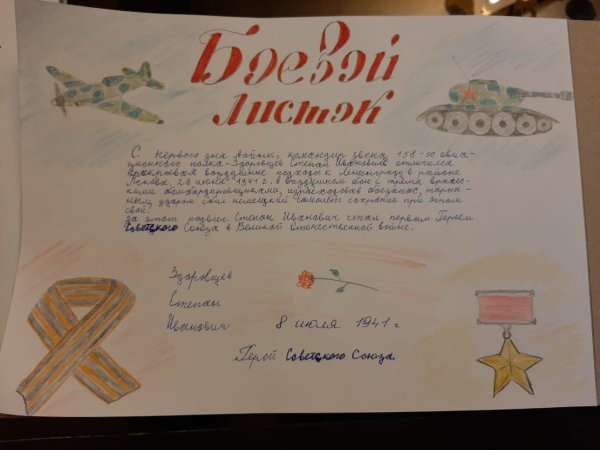 Боевой
листок
С первого дня войны, командир звена 158-го авиа-
ционного полка - Здоровцев Степан Иванович отличился
прикрывая воздушные подходы к Ленинграду в районе
Пскова. 28 июня 1941 г. в воздушном бою с тремя вражес-
кими бомбардировщиками, израсходовав боезапас, таран-
ным ударом сбил немецкий самолёт сохранив при этом
свой.
За этот подвиг Степан Иванович стал первым Героем
Советского Союза в Великой Отечественной войне.
Здоровцев
Степан
Иванович 8 июля 1941 г
Герой Советского Союза.